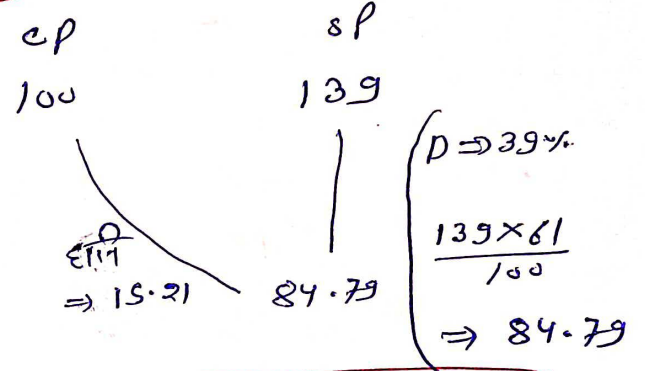 CP SP
100 139
D ⇒ 39%
139×61
100
हानि
⇒ 15.21 84.79
⇒ 84.79